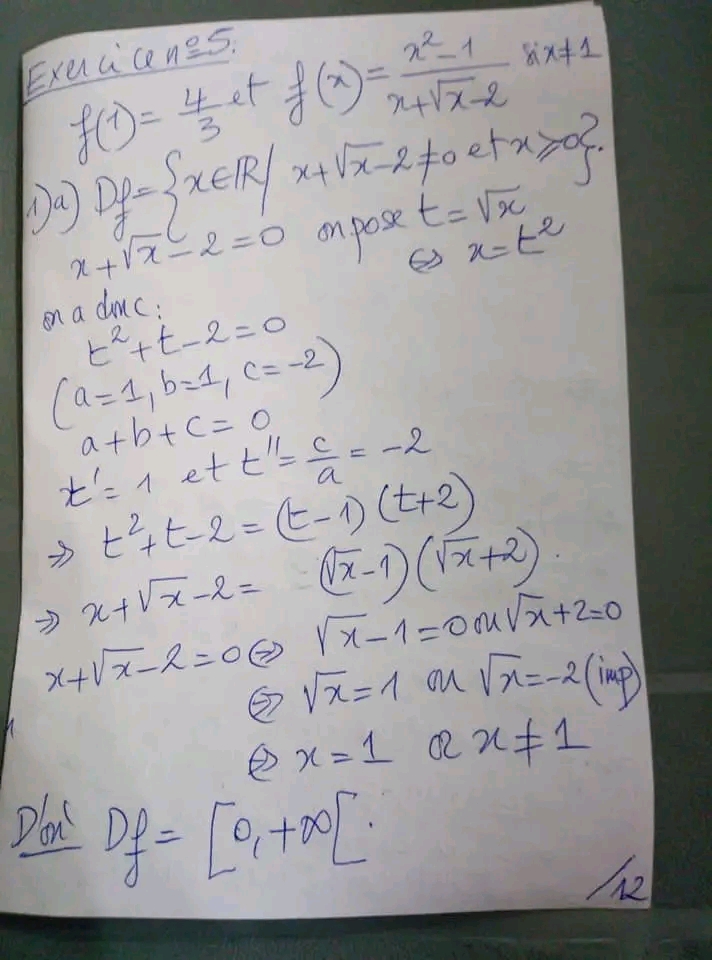 Exercice nº5.
f(1) = 4/3 et f(x) = (x² - 1)/(x+√x-2) si x≠1
1) a) Df = {x∈ℝ / x+√x-2≠0 et x⩾0}.
x+√x-2=0 on pose t=√x
⇔ x=t²
on a donc:
t²+t-2=0
(a=1, b=1, c=-2)
a+b+c=0
t'=1 et t''= c/a = -2
⇒ t²+t-2=(t-1)(t+2)
⇒ x+√x-2= (√x-1)(√x+2).
x+√x-2=0 ⇔ √x-1=0 ou √x+2=0
⇔ √x=1 ou √x=-2 (imp)
⇔ x=1 or x≠1
D'où Df = [0,+∞[.
/12